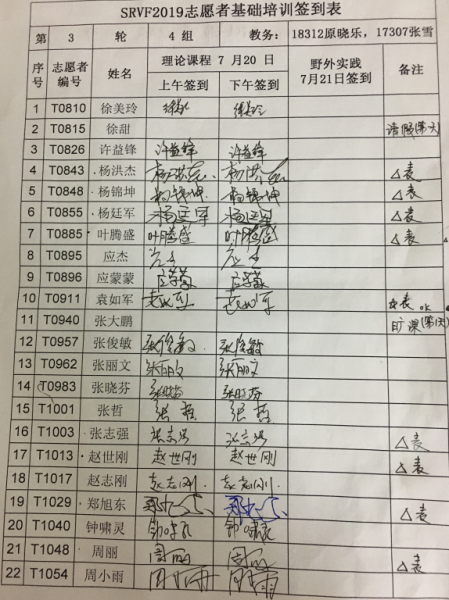 SRVF2019志愿者基础培训签到表
第 3 轮 4 组 教务: 18312原晓乐，17307张雪
序号 志愿者编号 姓名 理论课程 7 月 20 日 野外实践 7月21日签到 备注
上午签到 下午签到
1 T0810 徐美玲
2 T0815 徐甜 请假(第1天)
3 T0826 许益锋 许益锋 许益锋
4 T0843 ·杨洪杰 杨洪杰 杨洪杰 △表
5 T0848 ·杨锦坤 杨锦坤 杨锦坤 △表
6 T0855 ·杨廷军 杨廷军 杨廷军 △表
7 T0885 ·叶腾盛 叶腾盛 叶腾盛 △表
8 T0895 应杰 应杰 应杰
9 T0896 应蒙蒙 应蒙蒙 应蒙蒙
10 T0911 袁如军 袁如军 袁如军 表 ok
11 T0940 张大鹏 旷课(第1天)
12 T0957 张俊敏 张俊敏 张俊敏
13 T0962 张丽文 张丽文 张丽文
14 T0983 张晓芬 张晓芬 张晓芬
15 T1001 张哲 张哲 张哲
16 T1003 ·张志强 张志强 张志强 △表
17 T1013 ·赵世刚 赵世刚 赵世刚 △表
18 T1017 赵志刚 赵志刚 赵志刚
19 T1029 ·郑旭东 △表
20 T1040 钟啸灵 钟啸灵 钟啸灵
21 T1048 周丽 周丽 周丽 △表
22 T1054 周小雨 周小雨 周小雨